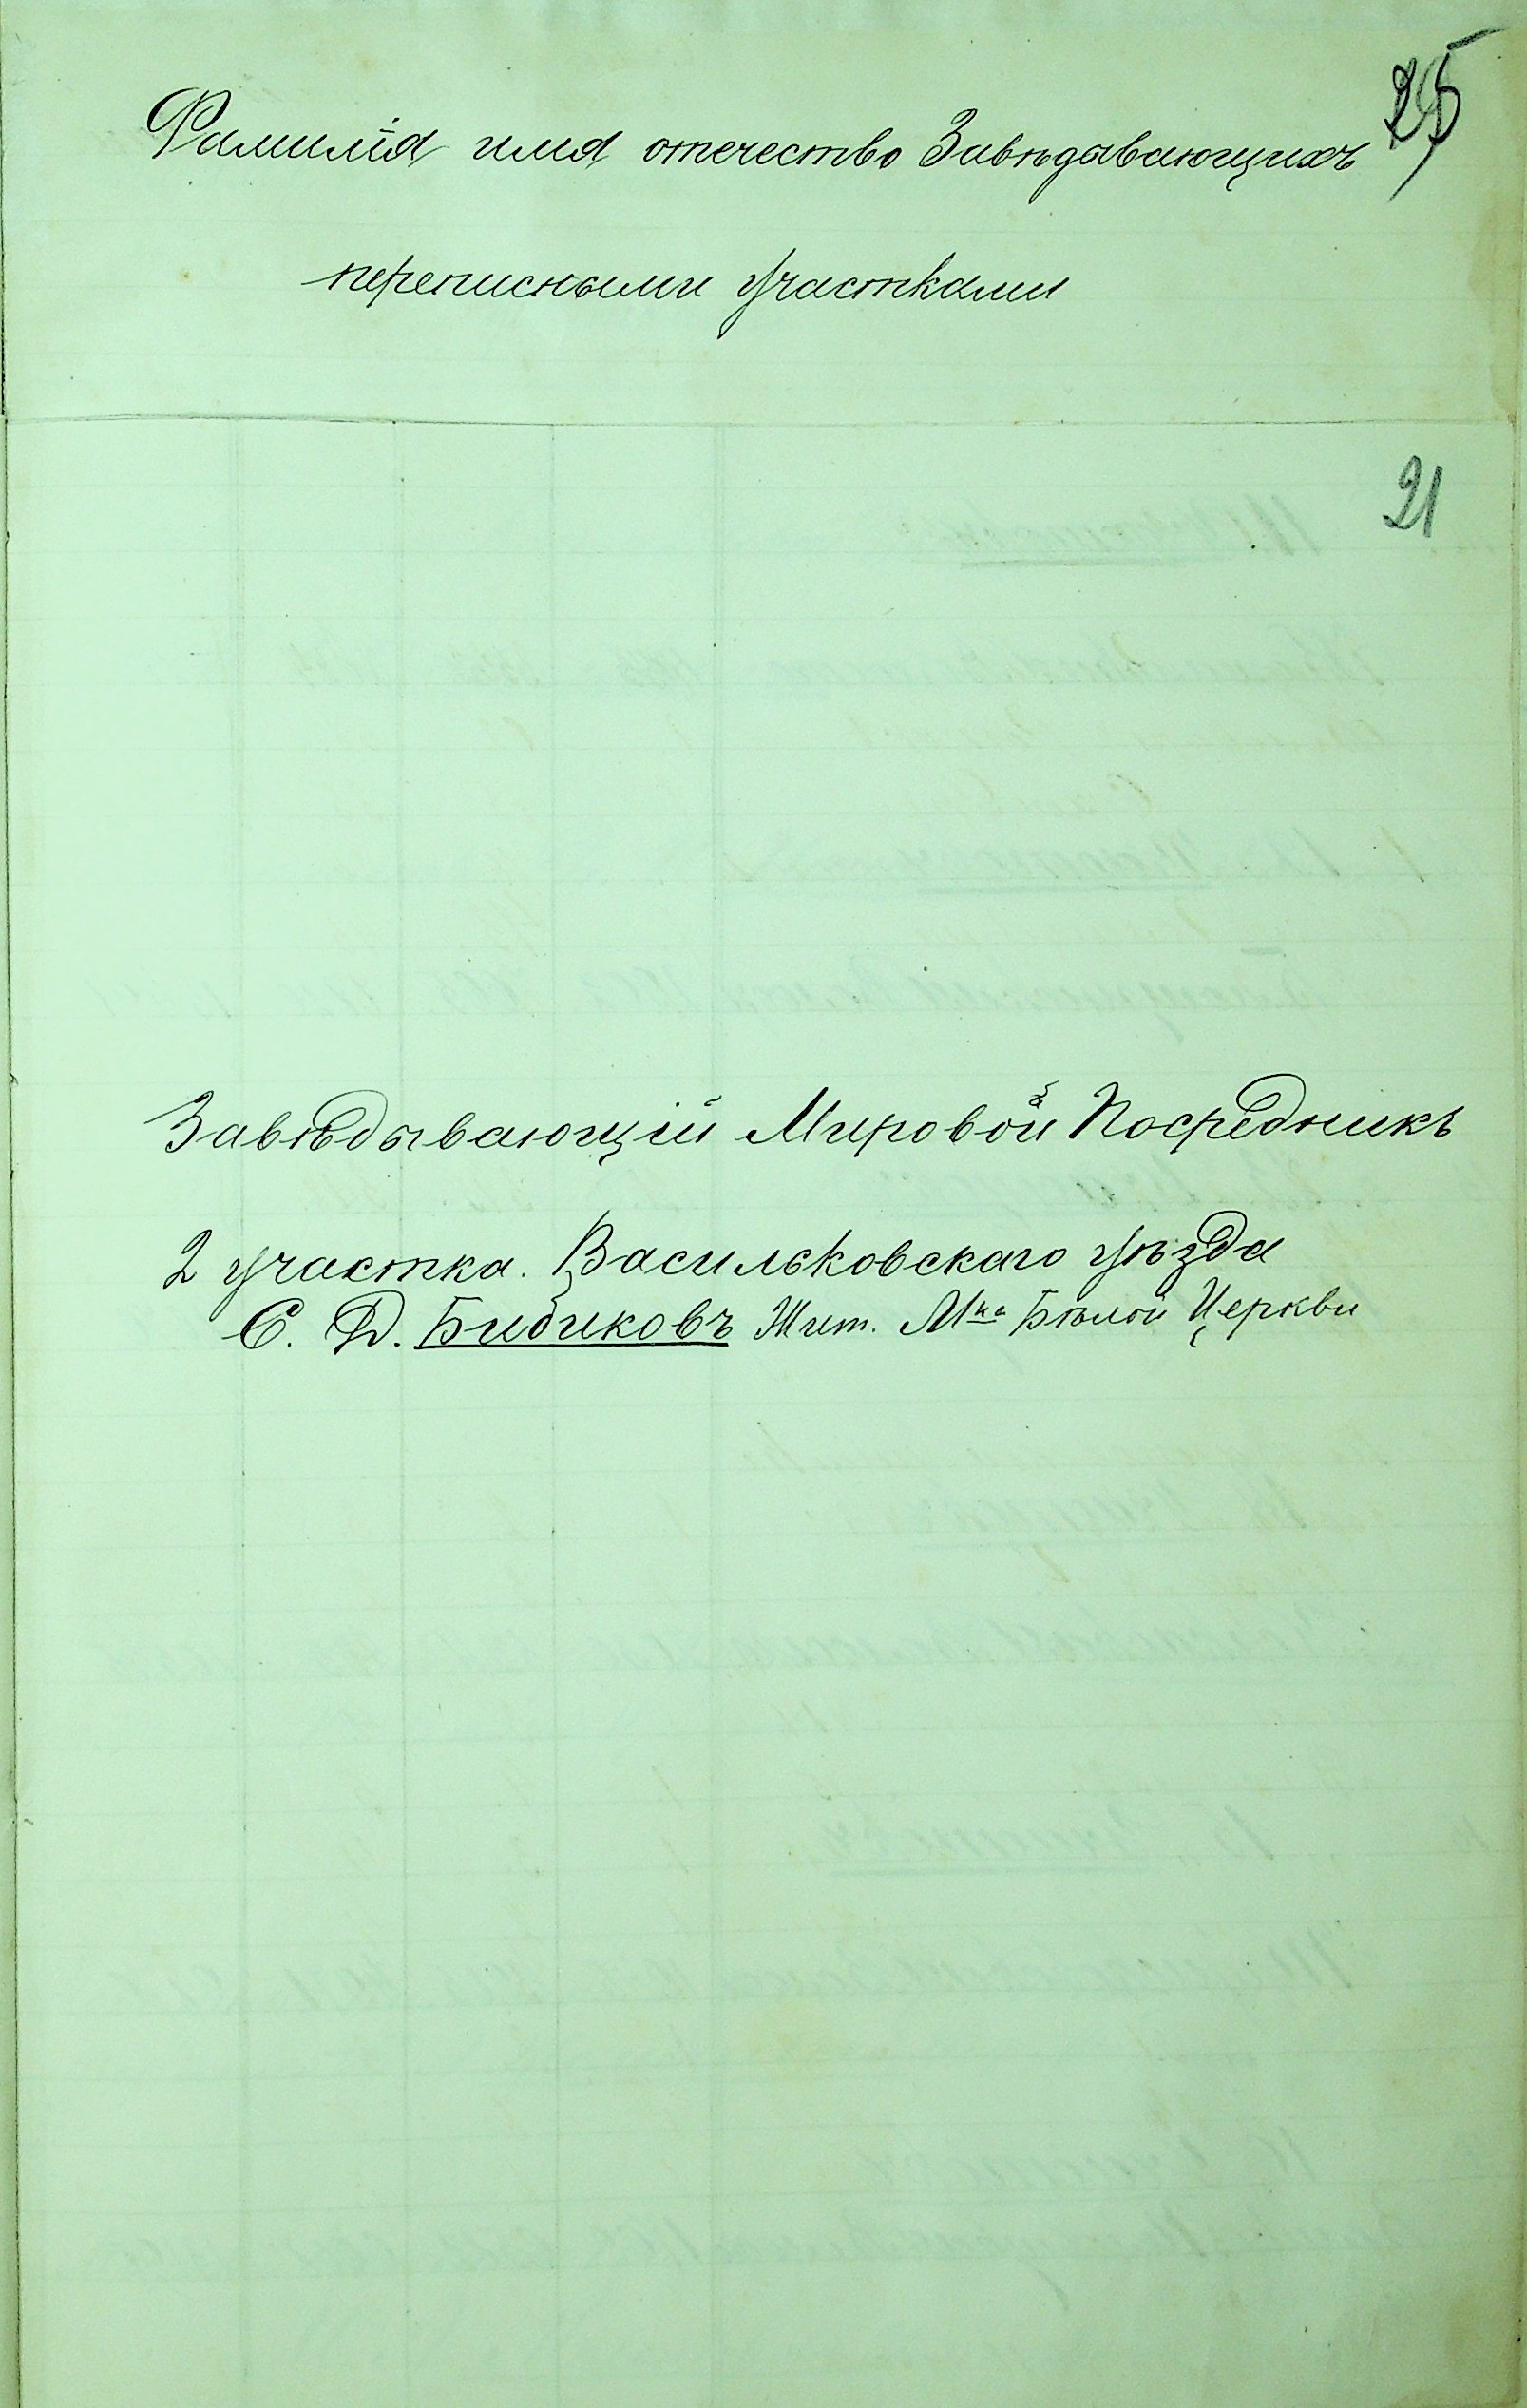 Фамилія имя отечество Завѣдавающихъ
25
переписными участками
21
Завѣдывающій Мировой Посредникъ
2 участка. Васильковскаго уѣзда
С. Д. Бибиковъ Жит. Мка Бѣлой Церкви